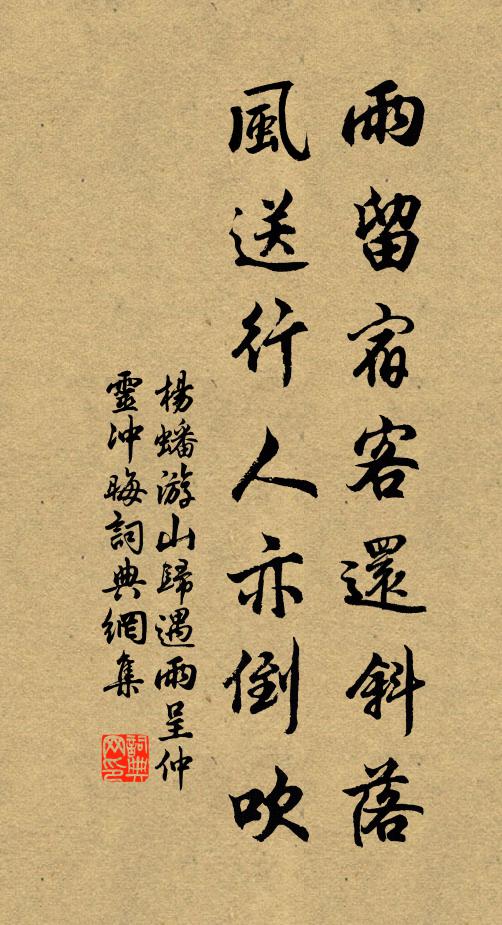 雨留宿客還斜落
風送行人亦倒吹
楊蟠游山歸遇雨呈仲
靈冲晦詞典網集
詞典
网印